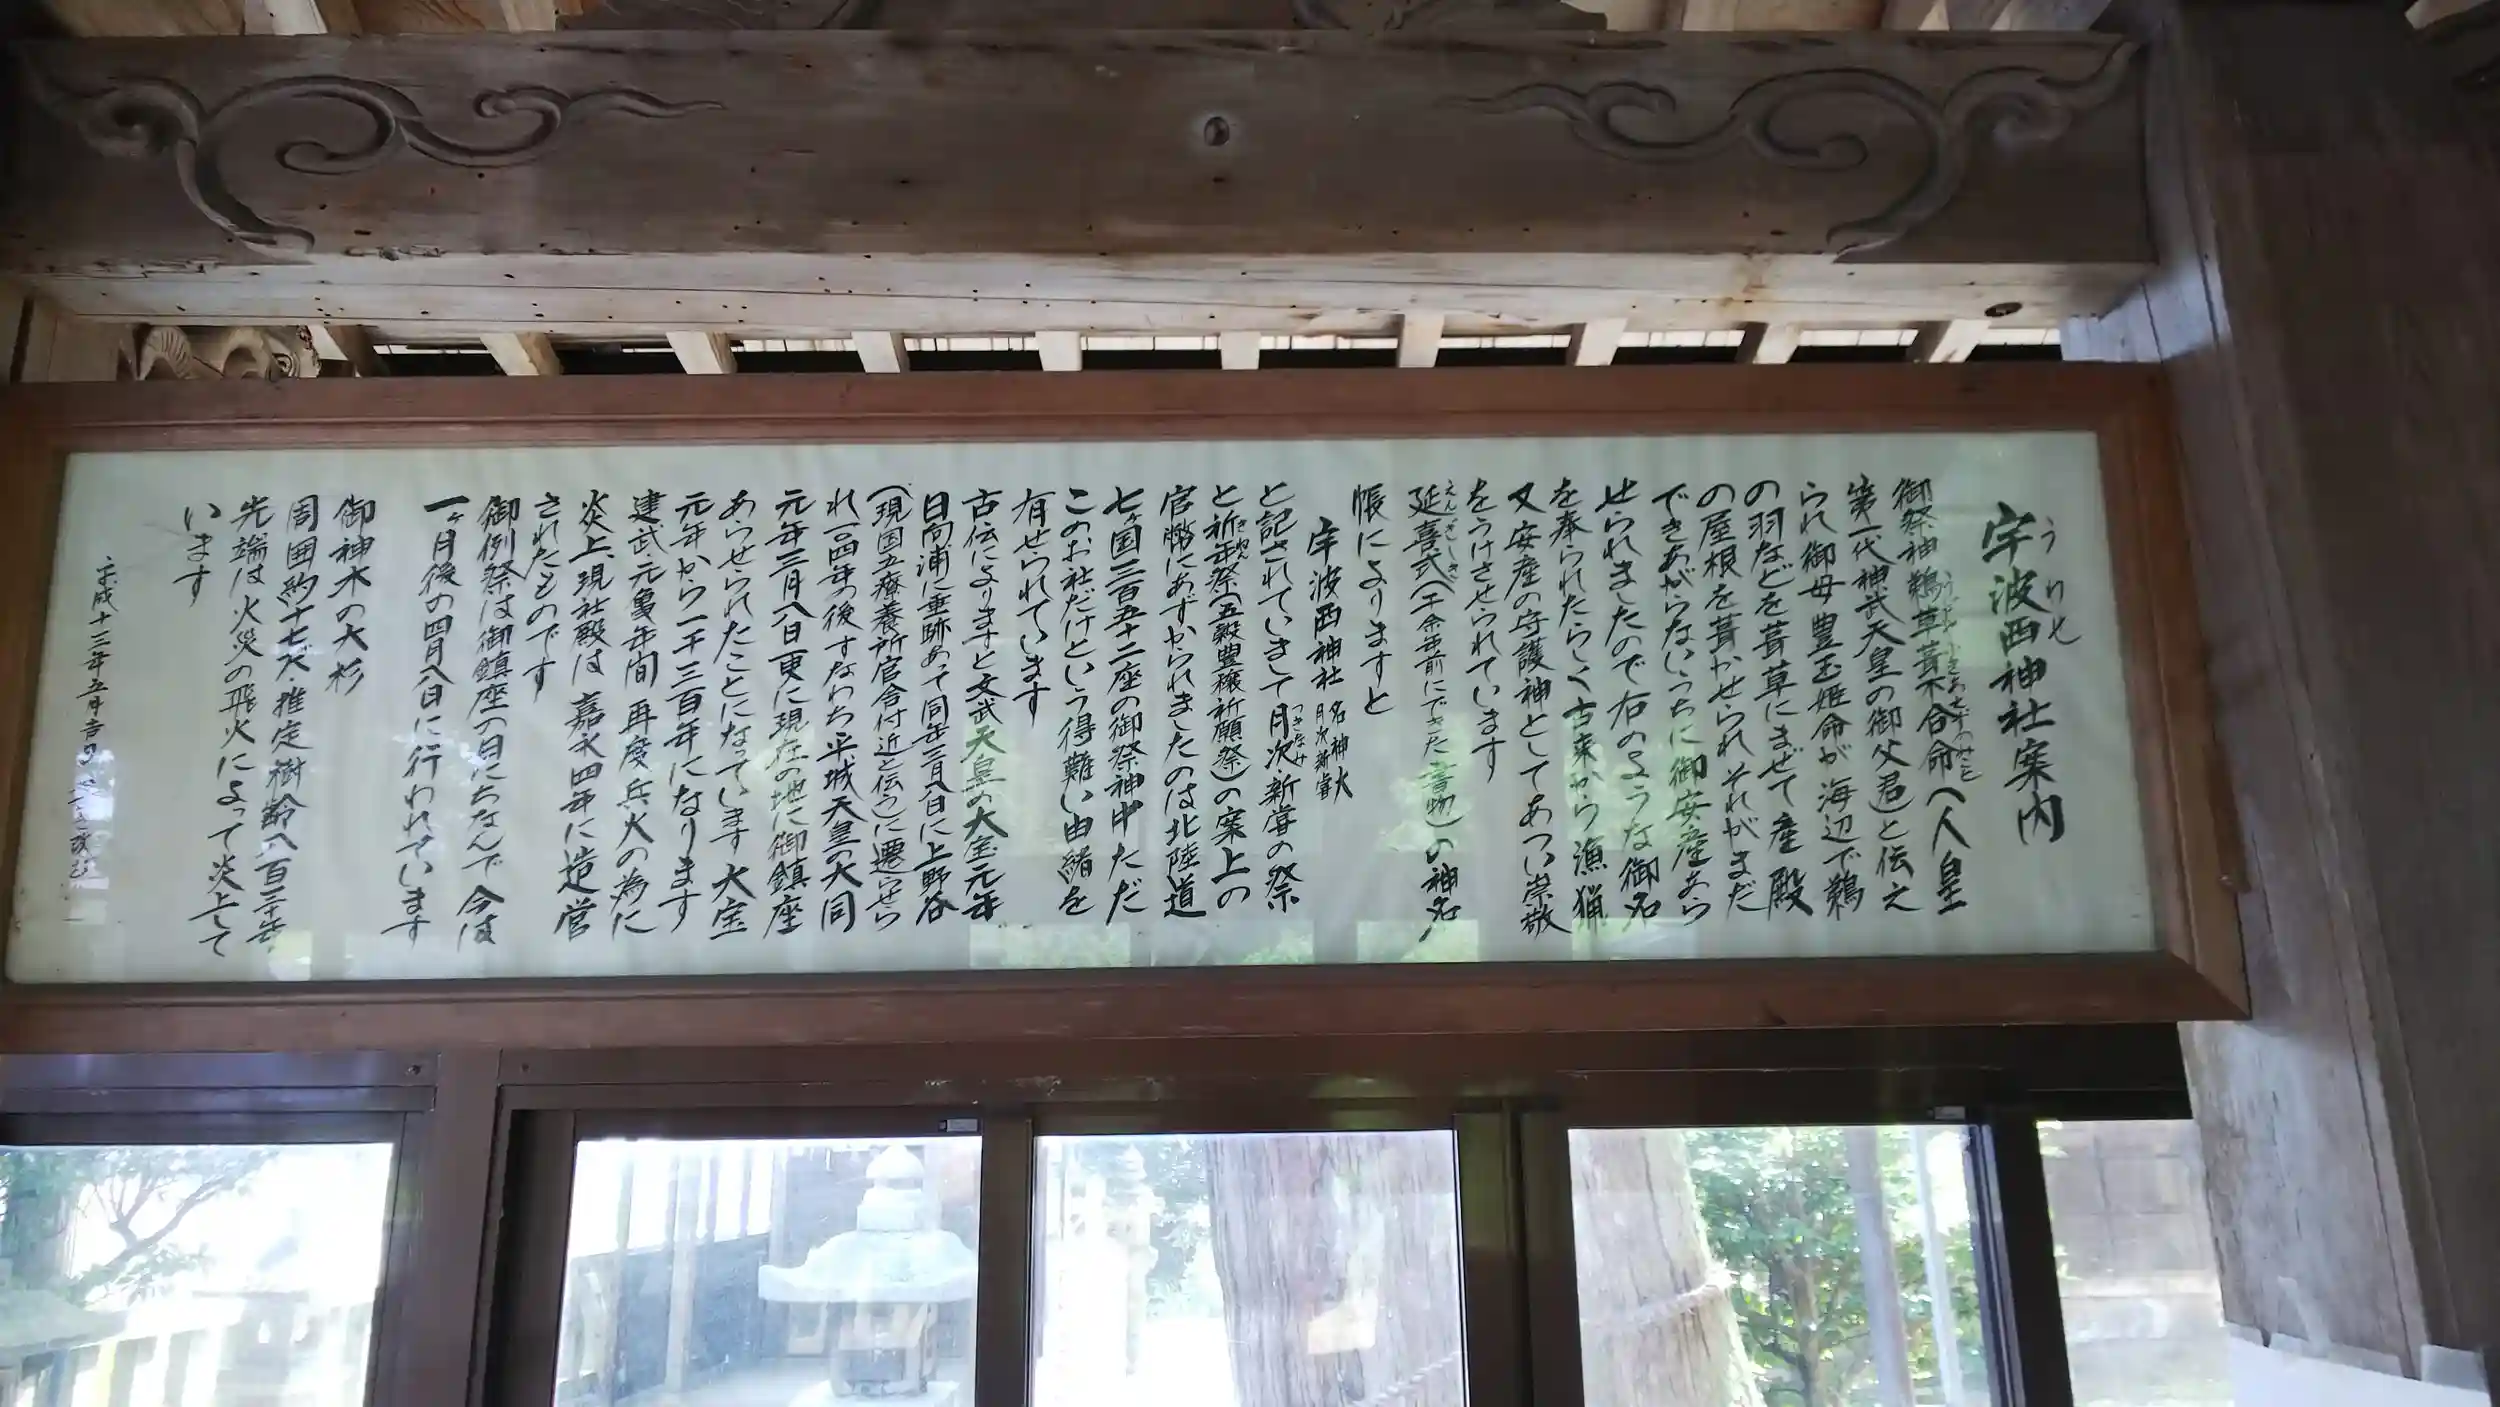 宇波西神社案内
うわせ
御祭神鵜草葺不合命(人皇
第一代神武天皇の御父君)と伝え
られ御母豊玉姫命が海辺で鵜
の羽などを葺草にまぜて産殿
の屋根を葺かせられそれがまだ
できあがらないうちに御安産あら
せられましたので右のような御名
を奉られたらしく古来から漁猟
又安産の守護神としてあつい崇敬
をうけさせられています
延喜式(千余年前にできた書物)の神名
えんぎしき
帳によりますと
宇波西神社 名神大 月次新嘗
と記されていまして月次・新嘗の祭
つきなみ
と祈年祭(五穀豊穣祈願祭)の案上の
きねん
官幣にあずかられましたのは北陸道
七ヶ国三百五十二座の御祭神中ただ
このお社だけという得難い由緒を
有せられています
古伝によりますと文武天皇の大宝元年
日向浦に垂跡あって同年三月八日に上野谷
(現国立療養所官舎付近と伝う)に遷らせら
れ一〇四年の後すなわち平城天皇の大同
元年三月八日更に現在の地に御鎮座
あらせられたことになっています 大宝
元年から一千三百年になります
建武・元亀年間 再度兵火の為に
炎上、現社殿は 嘉永四年に造営
されたものです
御例祭は御鎮座の日にちなんで 今は
一ヶ月後の四月八日に行われています
御神木の大杉
周囲約十七尺・推定樹齢八百三十年
先端は火災の飛火によって炎上して
います
平成十三年五月吉日